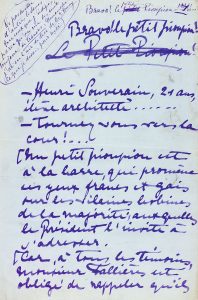 Bravo! le Pioupiou
Bravo le petit pioupiou!
Le Petit Pioupiou!
— Henri Souverain, 21 ans,
élève architecte......
— Tournez-vous vers la
cour!....
Un petit pioupiou est
à la barre, qui promène
ses yeux francs et gais
sur les vilaines bobines
de la majorité, auxquelles
le Président l'invite à
s'adresser.
Car, à tous les témoins,
Monsieur Fallières est
obligé de rappeler qu'ils